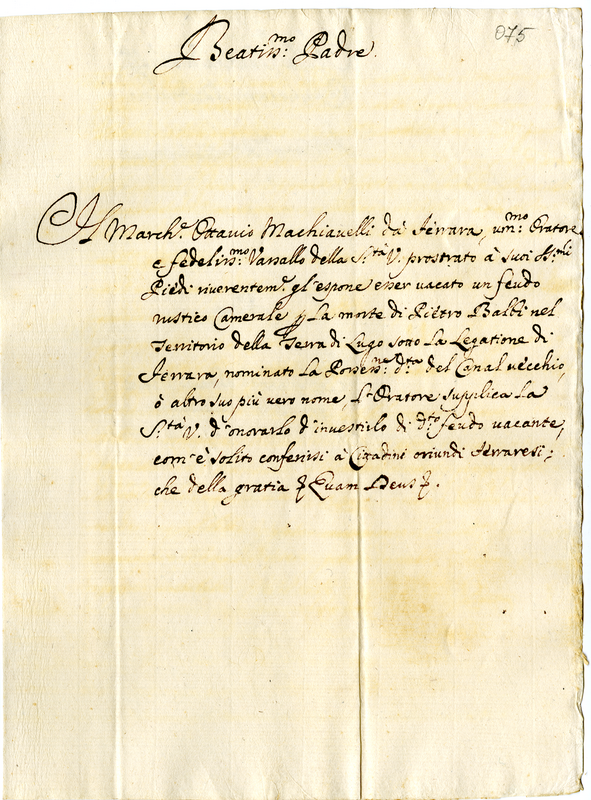 075
Beatiss:mo Padre.
Il March.e Ottavio Machiavelli da Ferrara, um:mo Oratore
e fedeliss:mo Vassallo della S.tà V. prostrato à suoi S.mi
Piedi riverentem.e gl'espone esser vacato un feudo
rustico Camerale p la morte di Pietro Balbi nel
Territorio della Terra di Lugo sotto la Legatione di
Ferrara, nominato la Possess:ne d.ta del Canal vecchio,
ò altro suo più vero nome, L'Oratore supplica la
S.tà V. d'onorarlo d'investirlo di d.to feudo vacante,
com'è solito conferirsi à Citadini oriundi Ferraresi;
che della gratia & Quam Deus &.